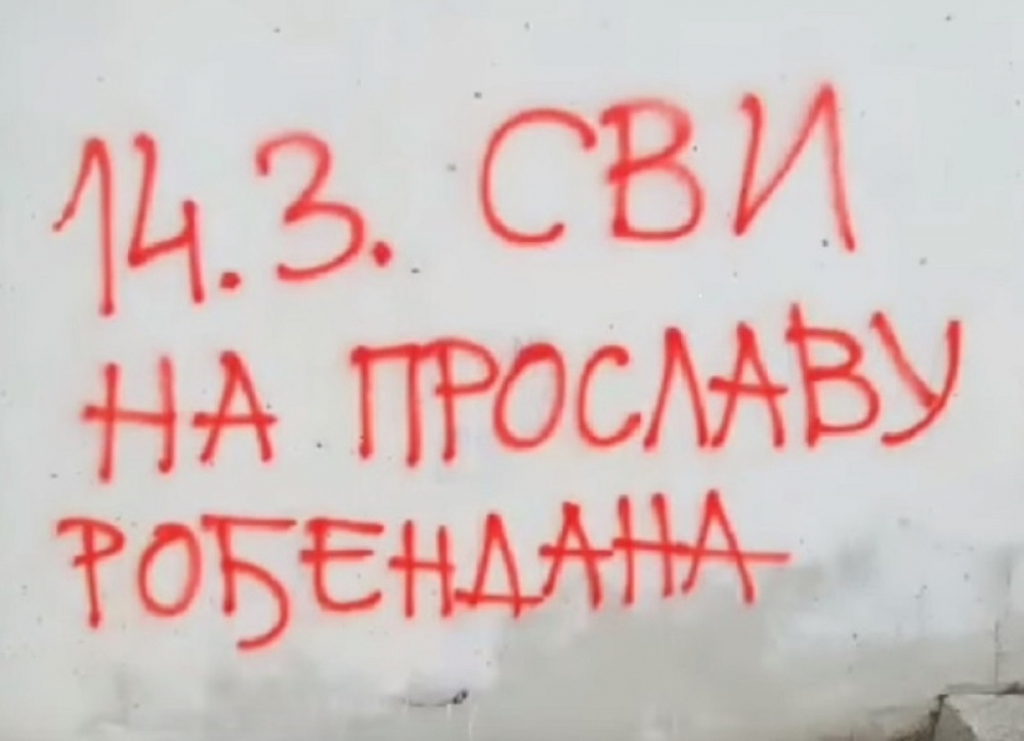 14.3. СВИ
НА ПРОСЛАВУ
РОЂЕНДАНА